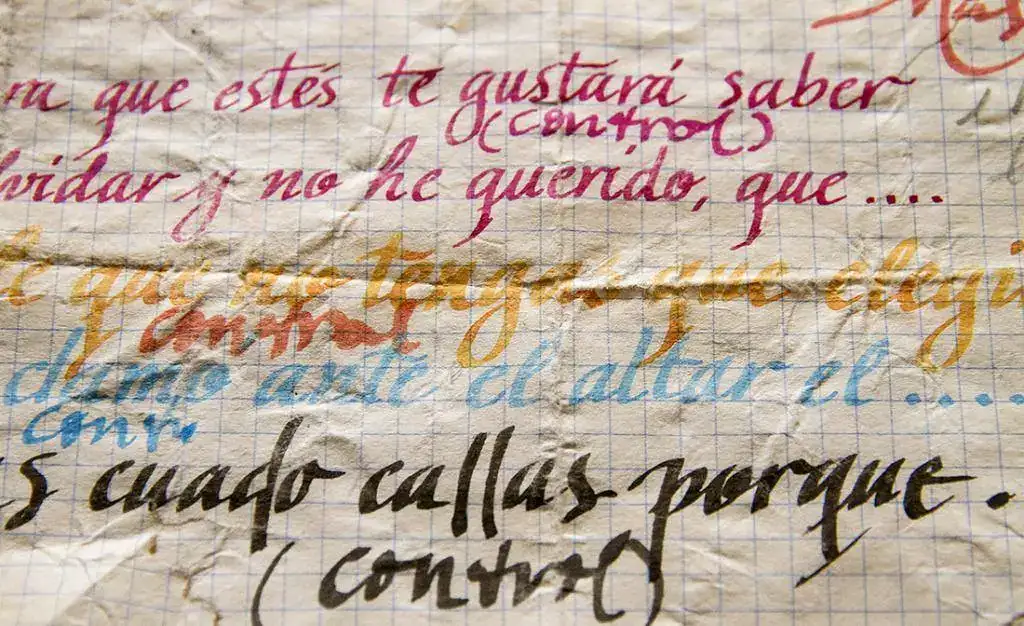 Mas
ra que estés te gustará saber
(control)
lvidar y no he querido, que ....
le que no tengas que elegi
control
ante el altar el ....
contr
s cuado callas porque .
(control)